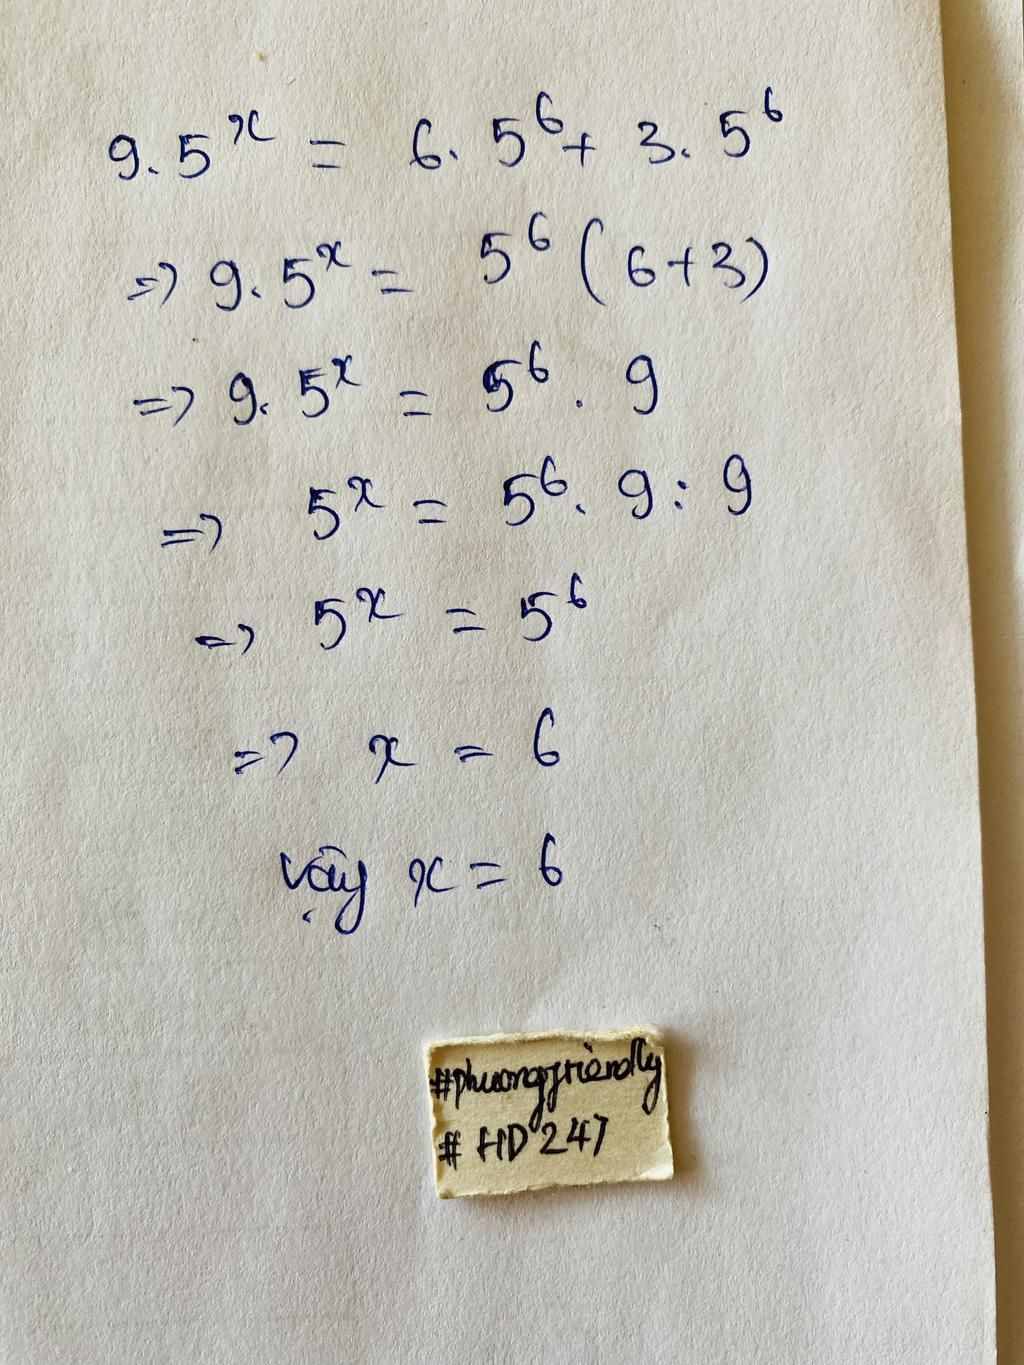 9.5^x = 6.5^6 + 3.5^6
=> 9.5^x = 5^6 (6+3)
=> 9.5^x = 5^6 . 9
=> 5^x = 5^6 . 9 : 9
=> 5^x = 5^6
=> x = 6
Vậy x = 6
#phuongfriendly
# HD 247